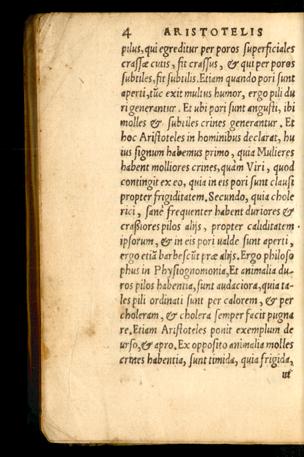 4 ARISTOTELIS
pilus, qui egreditur per poros superficiales
crassæ cutis, fit crassus, & qui per poros
subtiles, fit subtilis. Etiam quando pori sunt
aperti, tūc exit multus humor, ergo pili du
ri generantur. Et ubi pori sunt angusti, ibi
molles & subtiles crines generantur. Et
hoc Aristoteles in hominibus declarat, hu
ius signum habemus primo, quia Mulieres
habent molliores crines, quàm Viri, quod
contingit ex eo, quia in eis pori sunt clausi
propter frigiditatem. Secundo, quia chole
rici, sanè frequenter habent duriores &
craßiores pilos alijs, propter caliditatem
ipsorum, & in eis pori ualde sunt aperti,
ergo etiā barbescūt præ alijs. Ergo philoso
phus in Physiognomonia, Et animalia du-
ros pilos habentia, sunt audaciora, quia ta-
les pili ordinati sunt per calorem, & per
choleram, & cholera semper facit pugna
re, Etiam Aristoteles ponit exemplum de
urso, & apro. Ex opposito animalia molles
crines habentia, sunt timida, quia frigida,
ut